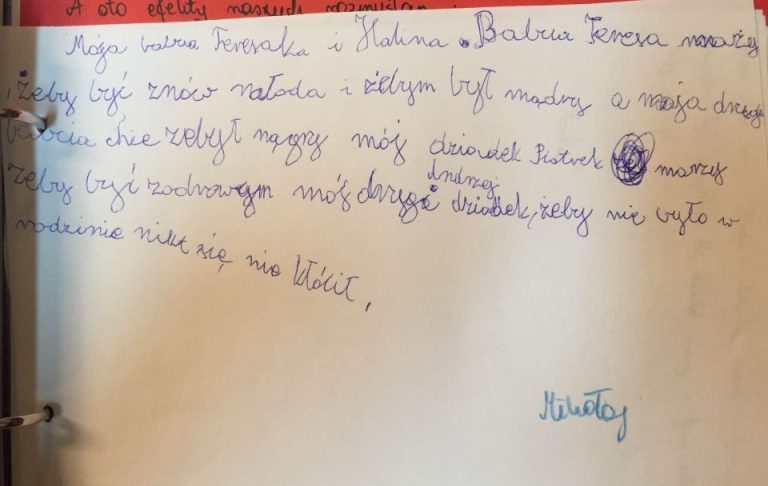 A oto efekty naszych rozmyślań
Moja babcia Teresaka i Halina. Babcia Teresa marzy
, żeby być znów młoda i żebym był mądry a moja druga
babcia chce żebył mągry mój dziadek Piotrek marzy
żeby być zodrowym mój drugi dziadek, żeby nie było w
Andrzej
rodzinie nikt się nie kłócił,
Mikołaj